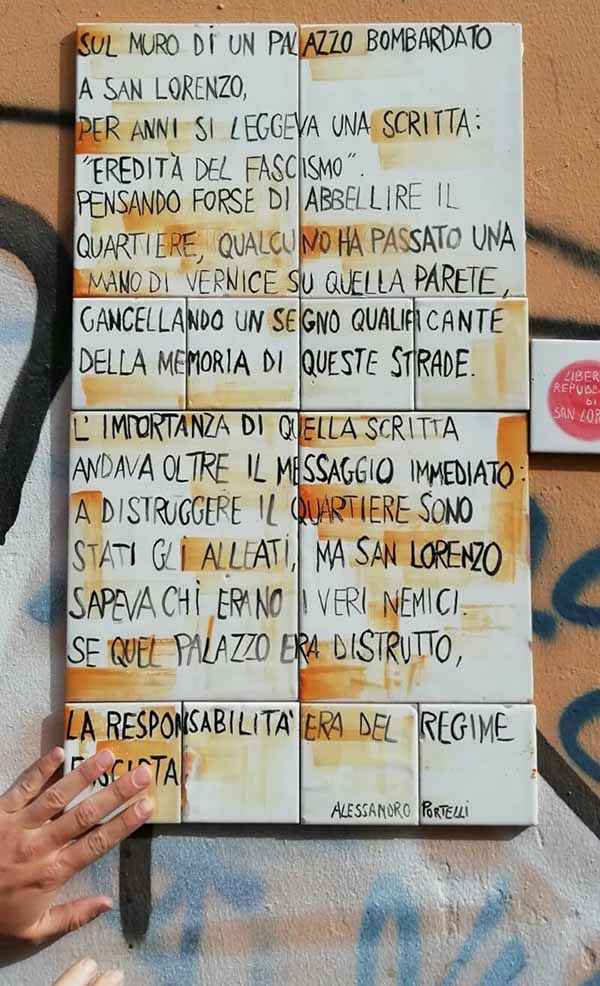 SUL MURO DI UN PALAZZO BOMBARDATO
A SAN LORENZO,
PER ANNI SI LEGGEVA UNA SCRITTA:
"EREDITÀ DEL FASCISMO".
PENSANDO FORSE DI ABBELLIRE IL
QUARTIERE, QUALCUNO HA PASSATO UNA
MANO DI VERNICE SU QUELLA PARETE,
CANCELLANDO UN SEGNO QUALIFICANTE
DELLA MEMORIA DI QUESTE STRADE.
L'IMPORTANZA DI QUELLA SCRITTA
ANDAVA OLTRE IL MESSAGGIO IMMEDIATO:
A DISTRUGGERE IL QUARTIERE SONO
STATI GLI ALLEATI, MA SAN LORENZO
SAPEVA CHI ERANO I VERI NEMICI.
SE QUEL PALAZZO ERA DISTRUTTO,
LA RESPONSABILITA' ERA DEL REGIME
FASCISTA
ALESSANDRO PORTELLI
LIBER
REPUBB
DI
SAN LOR